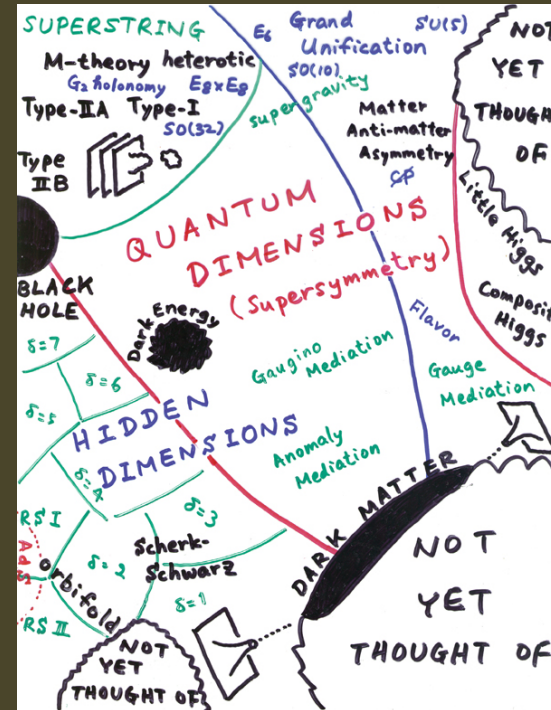 SUPERSTRING
M-theory heterotic
G₂ holonomy E₈×E₈
Type-IIA Type-I
SO(32)
Type
IIB
E₆ Grand SU(5)
Unification
SO(10)
supergravity
Matter
Anti-matter
Asymmetry
CP
NOT
YET
THOUGHT
OF
Little Higgs
Composit
Higgs
QUANTUM
DIMENSIONS
(Supersymmetry)
BLACK
HOLE
Dark Energy
Flavor
Gaugino
Mediation
Gauge
Mediation
Anomaly
Mediation
δ=7
δ=6
δ=5
HIDDEN
DIMENSIONS
δ=4
δ=3
RS I
AdS
δ=2
Scherk-
Schwarz
orbifold
δ=1
RS II
DARK MATTER
NOT
YET
THOUGHT OF
NOT
YET
THOUGHT OF